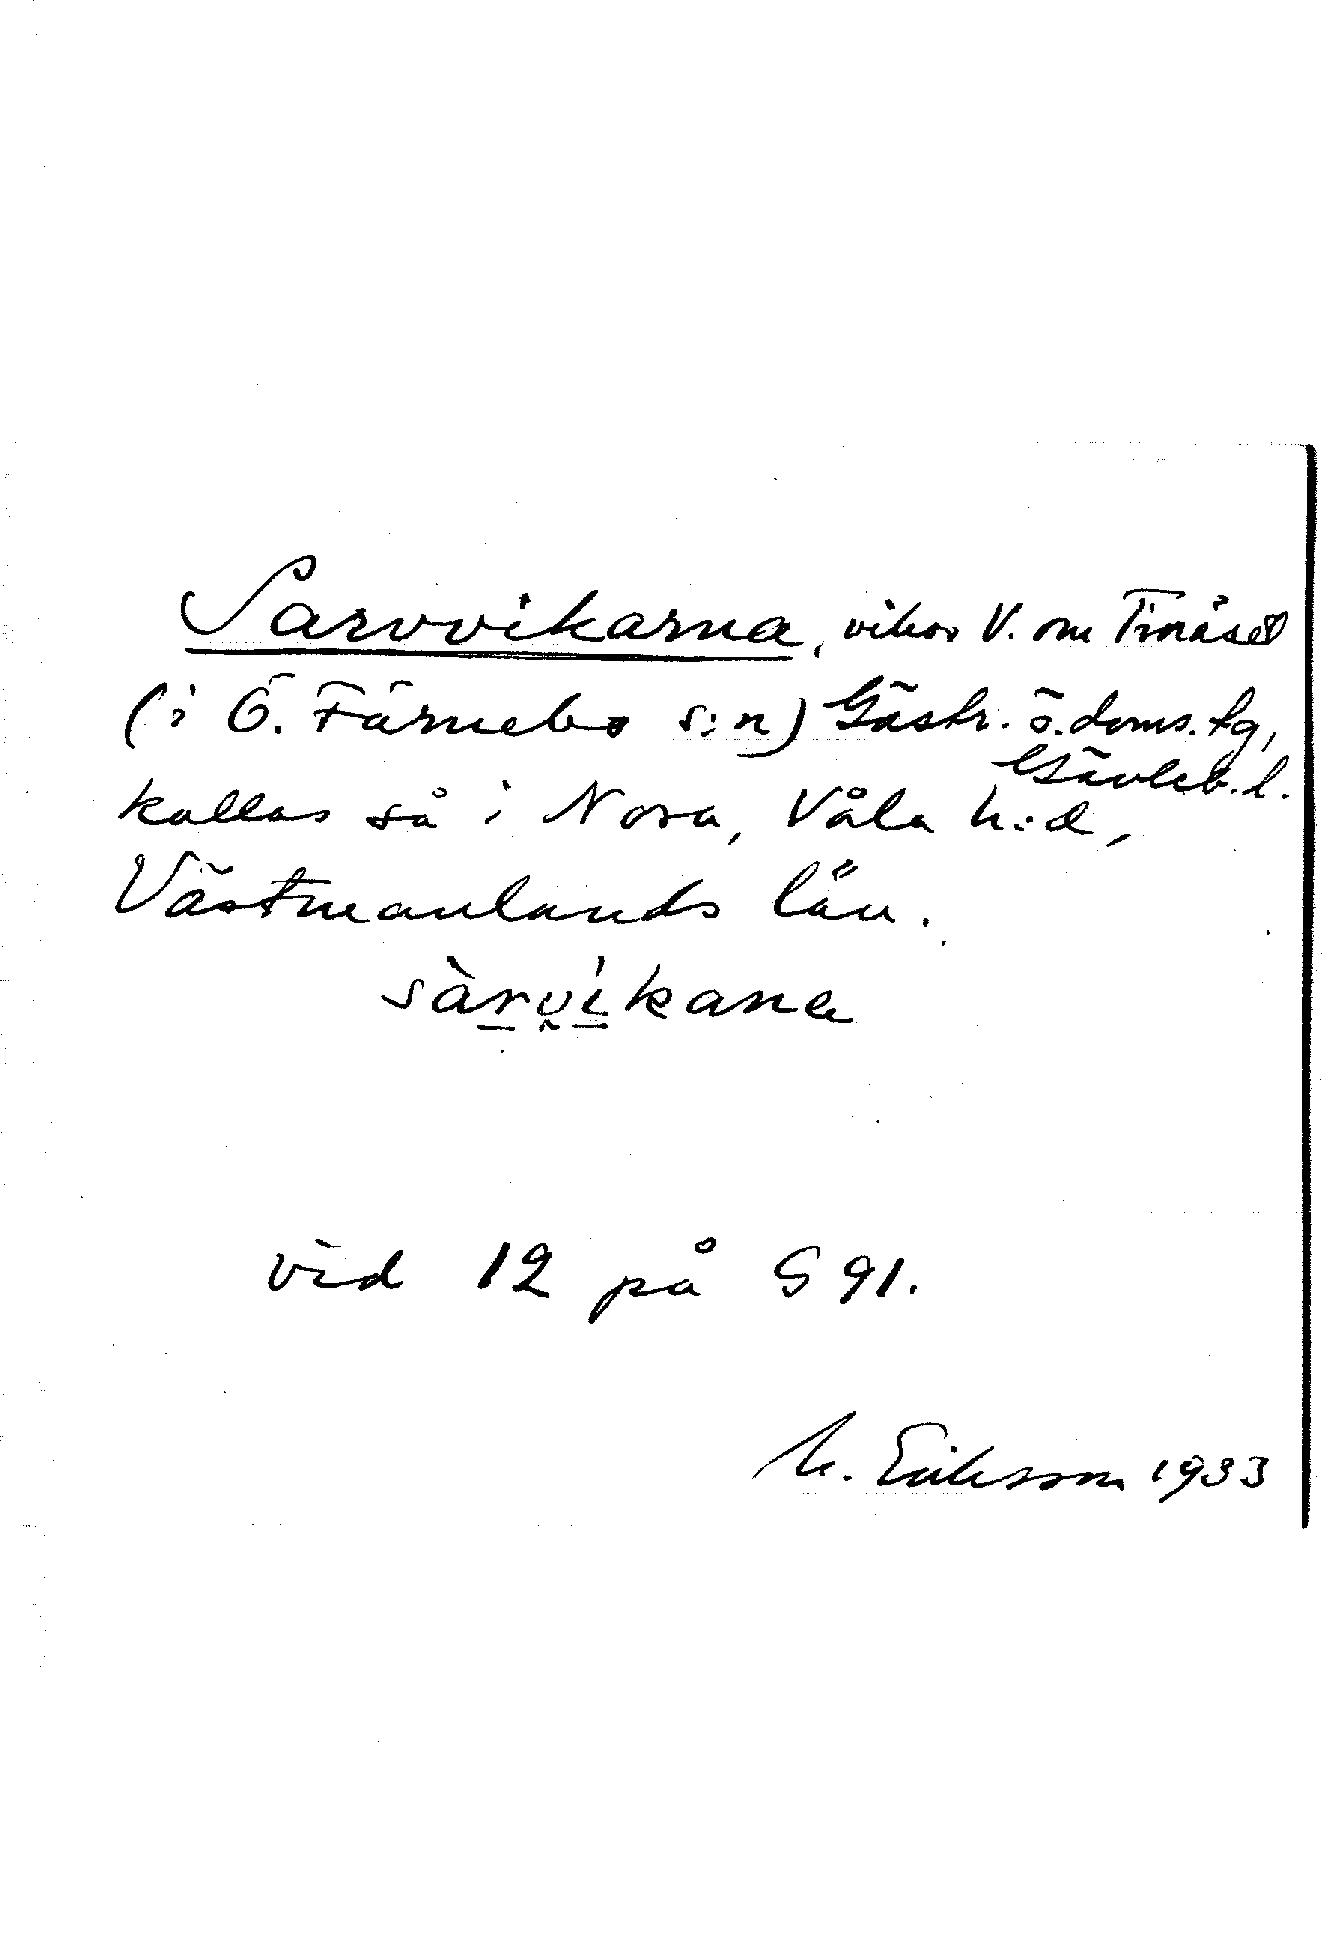 Sarvvikarna, vikar V. om Tinäset
(i Ö. Färnebo s:n) Gästr. ö. doms. tg,
Gävleb. l.
kallas så i Nora, Våla h:d,
Västmanlands län.
sàrvíkana
vid 12 på S 91.
M. Eriksson 1933